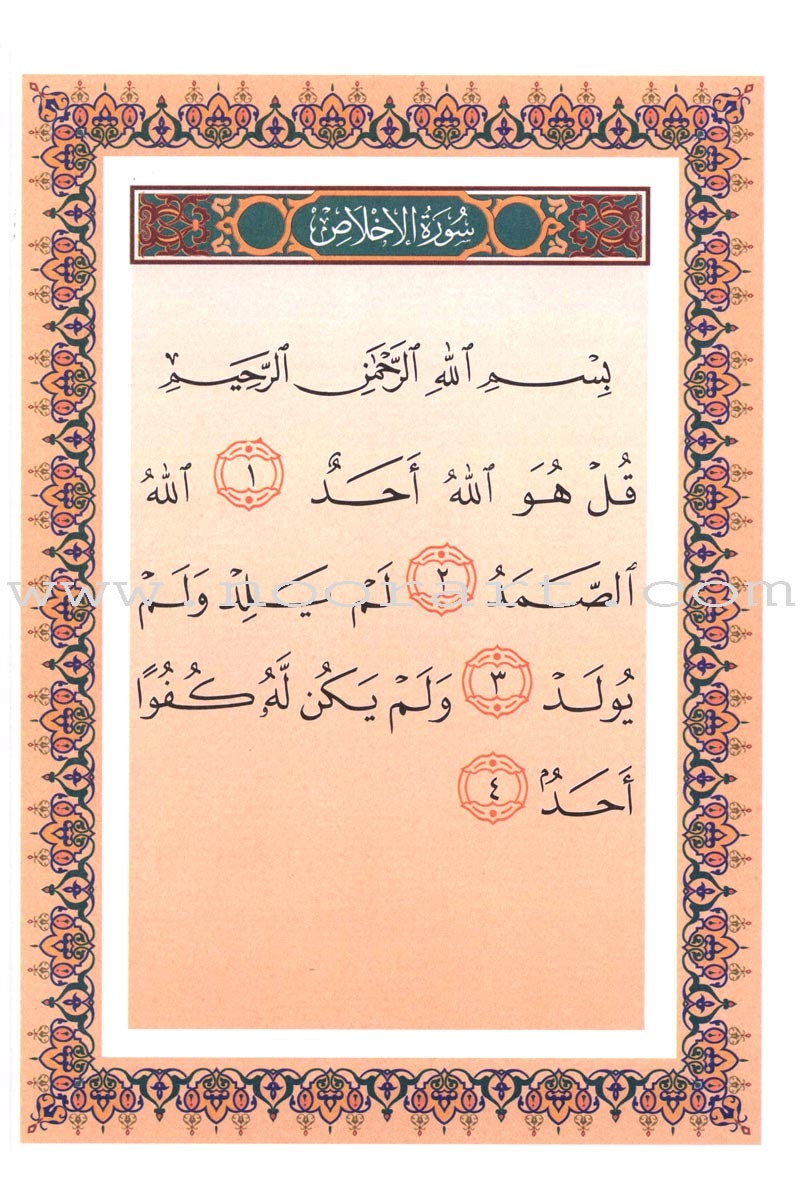 سُورَةُ الإِخْلَاصِ
بِسْمِ ٱللَّهِ ٱلرَّحْمَٰنِ ٱلرَّحِيمِ
قُلْ هُوَ ٱللَّهُ أَحَدٌ ١ ٱللَّهُ
ٱلصَّمَدُ ٢ لَمْ يَلِدْ وَلَمْ
www.noorart.com
يُولَدْ ٣ وَلَمْ يَكُن لَّهُۥ كُفُوًا
أَحَدٌۢ ٤